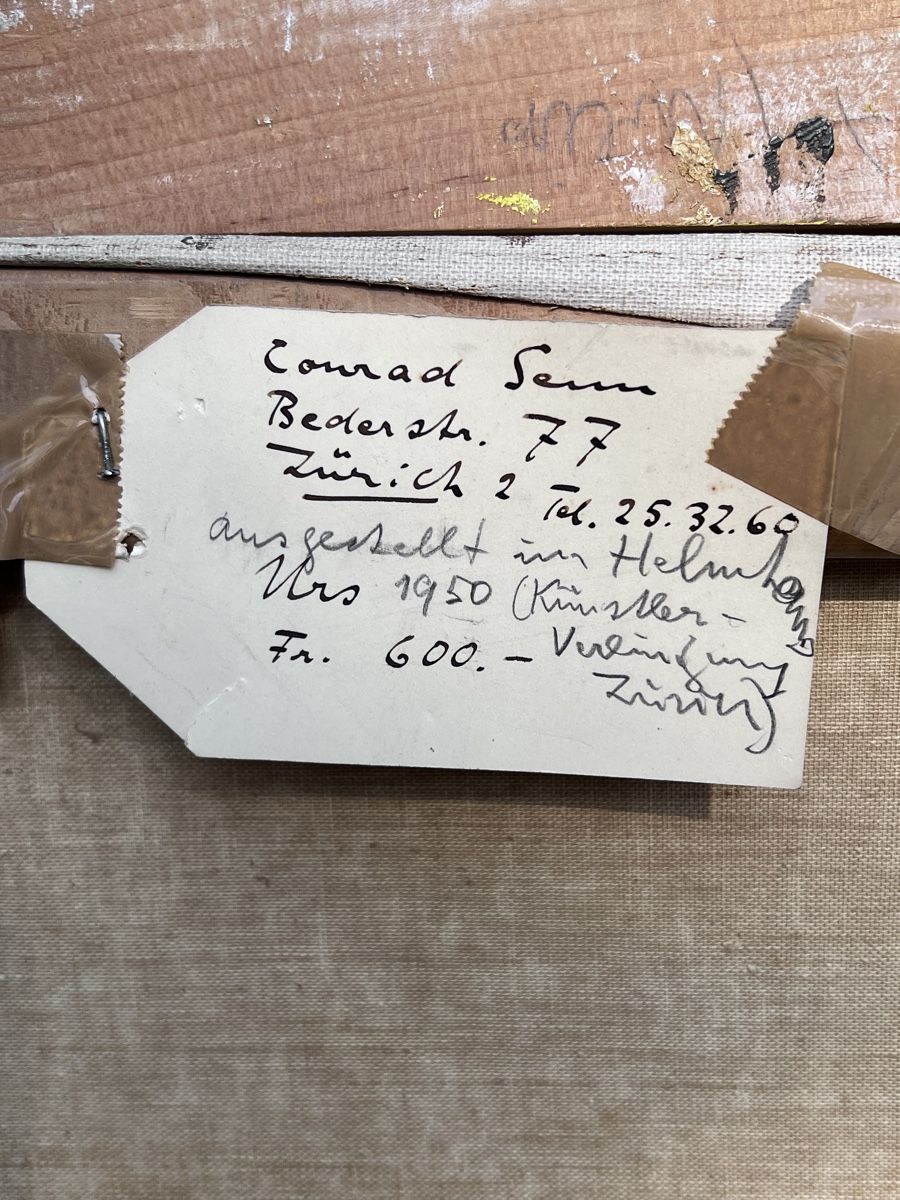 Conrad Senn
Bederstr. 77
Zürich 2 Tel. 25.32.60
ausgestellt im Helmhaus
Urs 1950 (Künstler-
Fr. 600.- Vereinigung
Zürich)